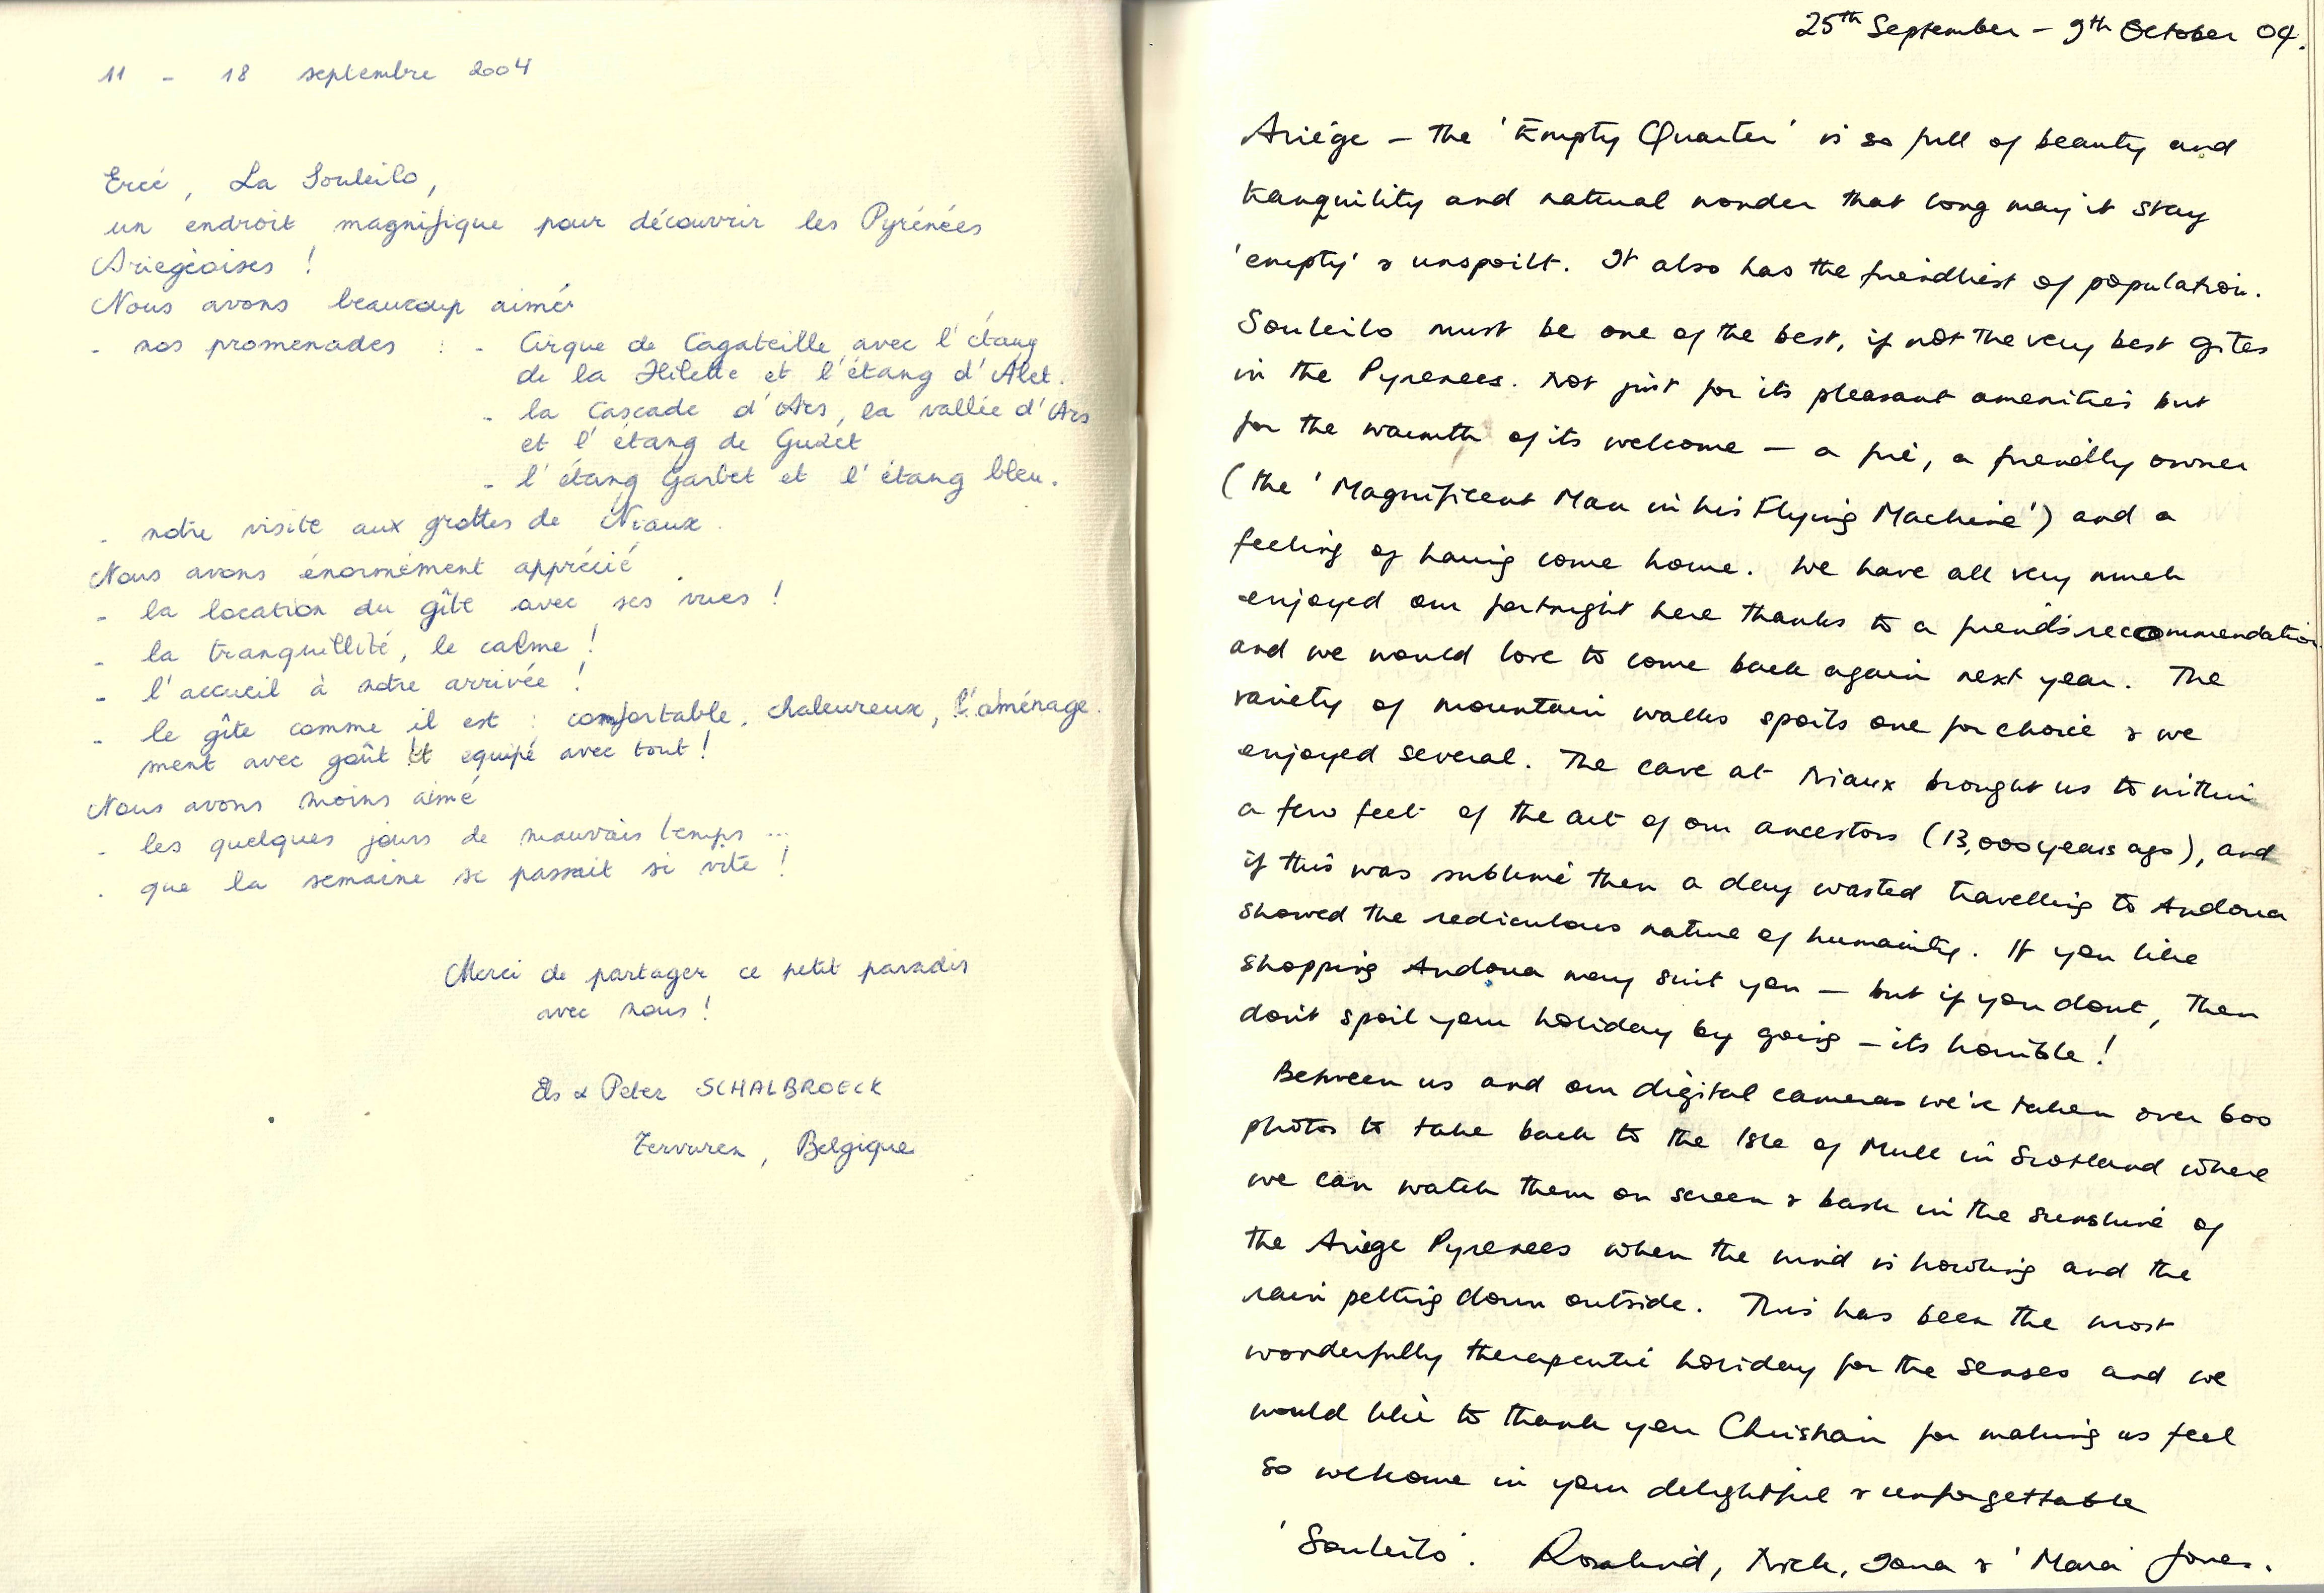 11 - 18 septembre 2004
Ercé, La Souleilo,
un endroit magnifique pour découvrir les Pyrénées
Ariegeoises !
Nous avons beaucoup aimé
- nos promenades : - Cirque de Cagateille avec l'étang
de la Hilette et l'étang d'Alet.
- la Cascade d'Ars, la vallée d'Ars
et l'étang de Guzet
- l'étang Garbet et l'étang bleu.
- notre visite aux grottes de Niaux.
Nous avons énormément apprécié
- la location du gîte avec ses vues !
- la tranquillité, le calme !
- l'accueil à notre arrivée !
- le gîte comme il est : comfortable, chaleureux, l'aménage-
ment avec goût et equipé avec tout !
Nous avons moins aimé
- les quelques jours de mauvais temps ...
- que la semaine se passait si vite !
Merci de partager ce petit paradis
avec nous !
Els & Peter SCHALBROECK
Tervuren, Belgique
25th September - 9th October 04.
Ariège - the 'Empty Quarter' is so full of beauty and
tranquility and natural wonder that long may it stay
'empty' & unspoilt. It also has the friendliest of population.
Souleilo must be one of the best, if not the very best gites
in the Pyrenees. Not just for its pleasant amenities but
for the warmth of its welcome - a fire, a friendly owner
(the 'Magnificent Man in his Flying Machine') and a
feeling of having come home. We have all very much
enjoyed our fortnight here thanks to a friend's recommendation
and we would love to come back again next year. The
variety of mountain walks spoils one for choice & we
enjoyed several. The cave at Niaux brought us to within
a few feet of the art of our ancestors (13,000 years ago), and
if this was sublime then a day wasted travelling to Andorra
showed the rediculous nature of humanity. If you like
shopping Andorra may suit you - but if you dont, then
don't spoil your holiday by going - its horrible!
Between us and our digital cameras we've taken over 600
photos to take back to the Isle of Mull in Scotland where
we can watch them on screen & bask in the sunshine of
the Ariege Pyrenees when the wind is howling and the
rain pelting down outside. This has been the most
wonderfully therapeutic holiday for the senses and we
would like to thank you Christian for making us feel
so welcome in your delightful & unforgettable
'Souleilo'. Rosalind, Nick, Iona & 'Mara' Jones.